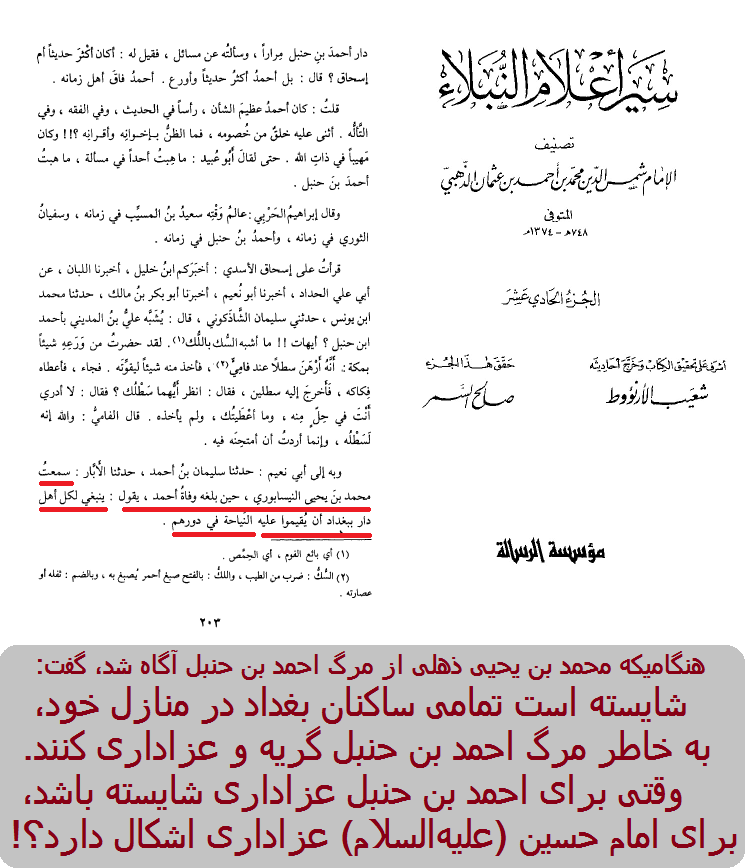 سير أعلام النبلاء
تصنيف
الإمام شمس الدين محمد بن أحمد بن عثمان الذهبي
المتوفى
٧٤٨هـ - ١٣٧٤م
الجزء الحادي عشر
أشرف على تحقيق الكتاب وخرج أحاديثه
شعيب الأرنؤوط
حقق هذا الجزء
صالح السمر
مؤسسة الرسالة
دار أحمدَ بنِ حنبل مِراراً ، وسألتُه عن مسائل ، فقيل له : أكان أكْثرَ حديثاً أم
إسحاق ؟ قال : بل أحمدُ أكثرُ حديثاً وأورع . أحمدُ فاقَ أهل زمانه .
قلتُ : كان أحمدُ عظيمَ الشأن ، رأساً في الحديث ، وفي الفقه ، وفي
التَّألُّه . أثنى عليه خلقٌ من خُصومه ، فما الظنُّ بـإخـوانِه وأقـرانِه ؟!! وكان
مَهيباً في ذاتِ الله . حتى لقالَ أبُو عُبيد : ما هِبتُ أحداً في مسألة ، ما هبتُ
أحمدَ بنَ حنبل .
وقال إبراهيمُ الحَرْبِي : عالمُ وَقْتِه سعيدُ بنُ المسيِّب في زمانه ، وسفيانُ
الثوري في زمانه ، وأحمدُ بنُ حنبل في زمانه .
قرأتُ على إسحاق الأسدي : أخبَرَكم ابنُ خليل ، أخبرنا اللبان ، عن
أبي علي الحداد ، أخبرنا أبو نُعيم ، أخبرنا أبو بكر بنُ مالك ، حدثنا محمد
ابن يونس ، حدثني سليمان الشَّاذَكوني ، قال : يُشَبَّه عليُّ بنُ المديني بأحمد
ابن حنبل ؟ أيهات !! ما أشبه السُّك باللُّك(١) . لقد حضرتُ من وَرَعِهِ شيئاً
بمكة : أنَّه أرْهَنَ سطلًا عند فامِيٍّ(٢) ، فأخذ منه شيئاً ليقوِّتَه . فجاء ، فأعطاه
فِكاكه ، فَأخرجَ إليه سطلين ، فقال : انظر أيُّهما سَطْلُك ؟ فقال : لا أدري
أنْتَ في حِلٍّ مِنه ، وما أعْطَيتُك ، ولم يأخذه . قال الفاميُّ : والله إنه
لَسَطْلُه ، وإنما أردتُ أن أمتحِنَه فيه .
وبه إلى أبي نعيم : حدثنا سليمان بنُ أحمد ، حدثنا الأبَّار : سمعتُ
محمد بنَ يحيى النيسابوري ، حين بلغه وفاةُ أحمد ، يقول : ينبغي لكل أهل
دار ببغداد أن يُقيموا عليه النِّياحة في دورهم .
(١) أي بائع الفوم ، أي الحِمَّص .
(٢) السُّكُ : ضرب من الطيب ، واللكُ : بالفتح صبغ أحمر يُصبغ به ، وبالضم : ثفله أو
عصارته .
٢٠٣
هنگامیکه محمد بن یحیی ذهلی از مرگ احمد بن حنبل آگاه شد، گفت:
شایسته است تمامی ساکنان بغداد در منازل خود،
به خاطر مرگ احمد بن حنبل گریه و عزاداری کنند.
وقتی برای احمد بن حنبل عزاداری شایسته باشد،
برای امام حسین (علیه‌السلام) عزاداری اشکال دارد؟!